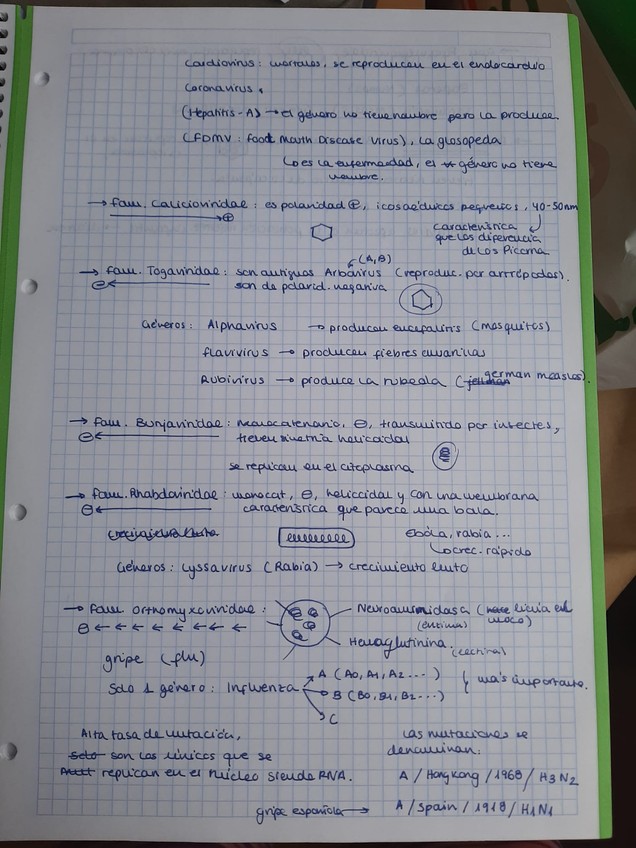 Cardiovirus: mortales, se reproducen en el endocardio
Coronavirus.
(Hepatitis-A) → el género no tiene nombre pero la produce.
(FDMV: foot Mouth Disease Virus), la glosopeda
↳ es la enfermedad, el género no tiene
nombre.
→ fam. Caliciviridae: es polaridad ⊕, icosaédricos pequeños, 40-50nm
⊕
característica
que los diferencia
de los Picorna
(A,B)
→ fam. Togaviridae: son antiguos Arbovirus (reproduc. por artrópodos).
⊖ son de polarid. negativa
Géneros: Alphavirus → producen encefalitis (mosquitos)
flavivirus → producen fiebres amarillas
Rubivirus → produce la rubeola (german measles).
→ fam. Bunjaviridae: monocatenario, ⊖, transmitido por insectes,
⊖ tienen simetria helicoidal
se replican en el citoplasma
→ fam. Rhabdoviridae: monocat, ⊖, heliccidal y con una membrana
⊖ característica que parece una bala.
ebola, rabia...
↳ crec. rápido
Géneros: Lyssavirus (Rabia) → crecimiento lento
→ fam. Orthomyxoviridae: Neuroaminidasa (licúa el
⊖ ← ← ← ← ← ← ← (enzima) moco)
Hemaglutinina. (lectina)
gripe (flu)
Solo 1 género: Influenza → A (A0, A1, A2....) } más importante.
→ B (B0, B1, B2...)
→ C
Alta tasa de mutación,
son los únicos que se
replican en el núcleo siendo RNA.
Las mutaciones se
denominan:
A / Hong Kong / 1968 / H3 N2
gripe española → A / Spain / 1918 / H1N1